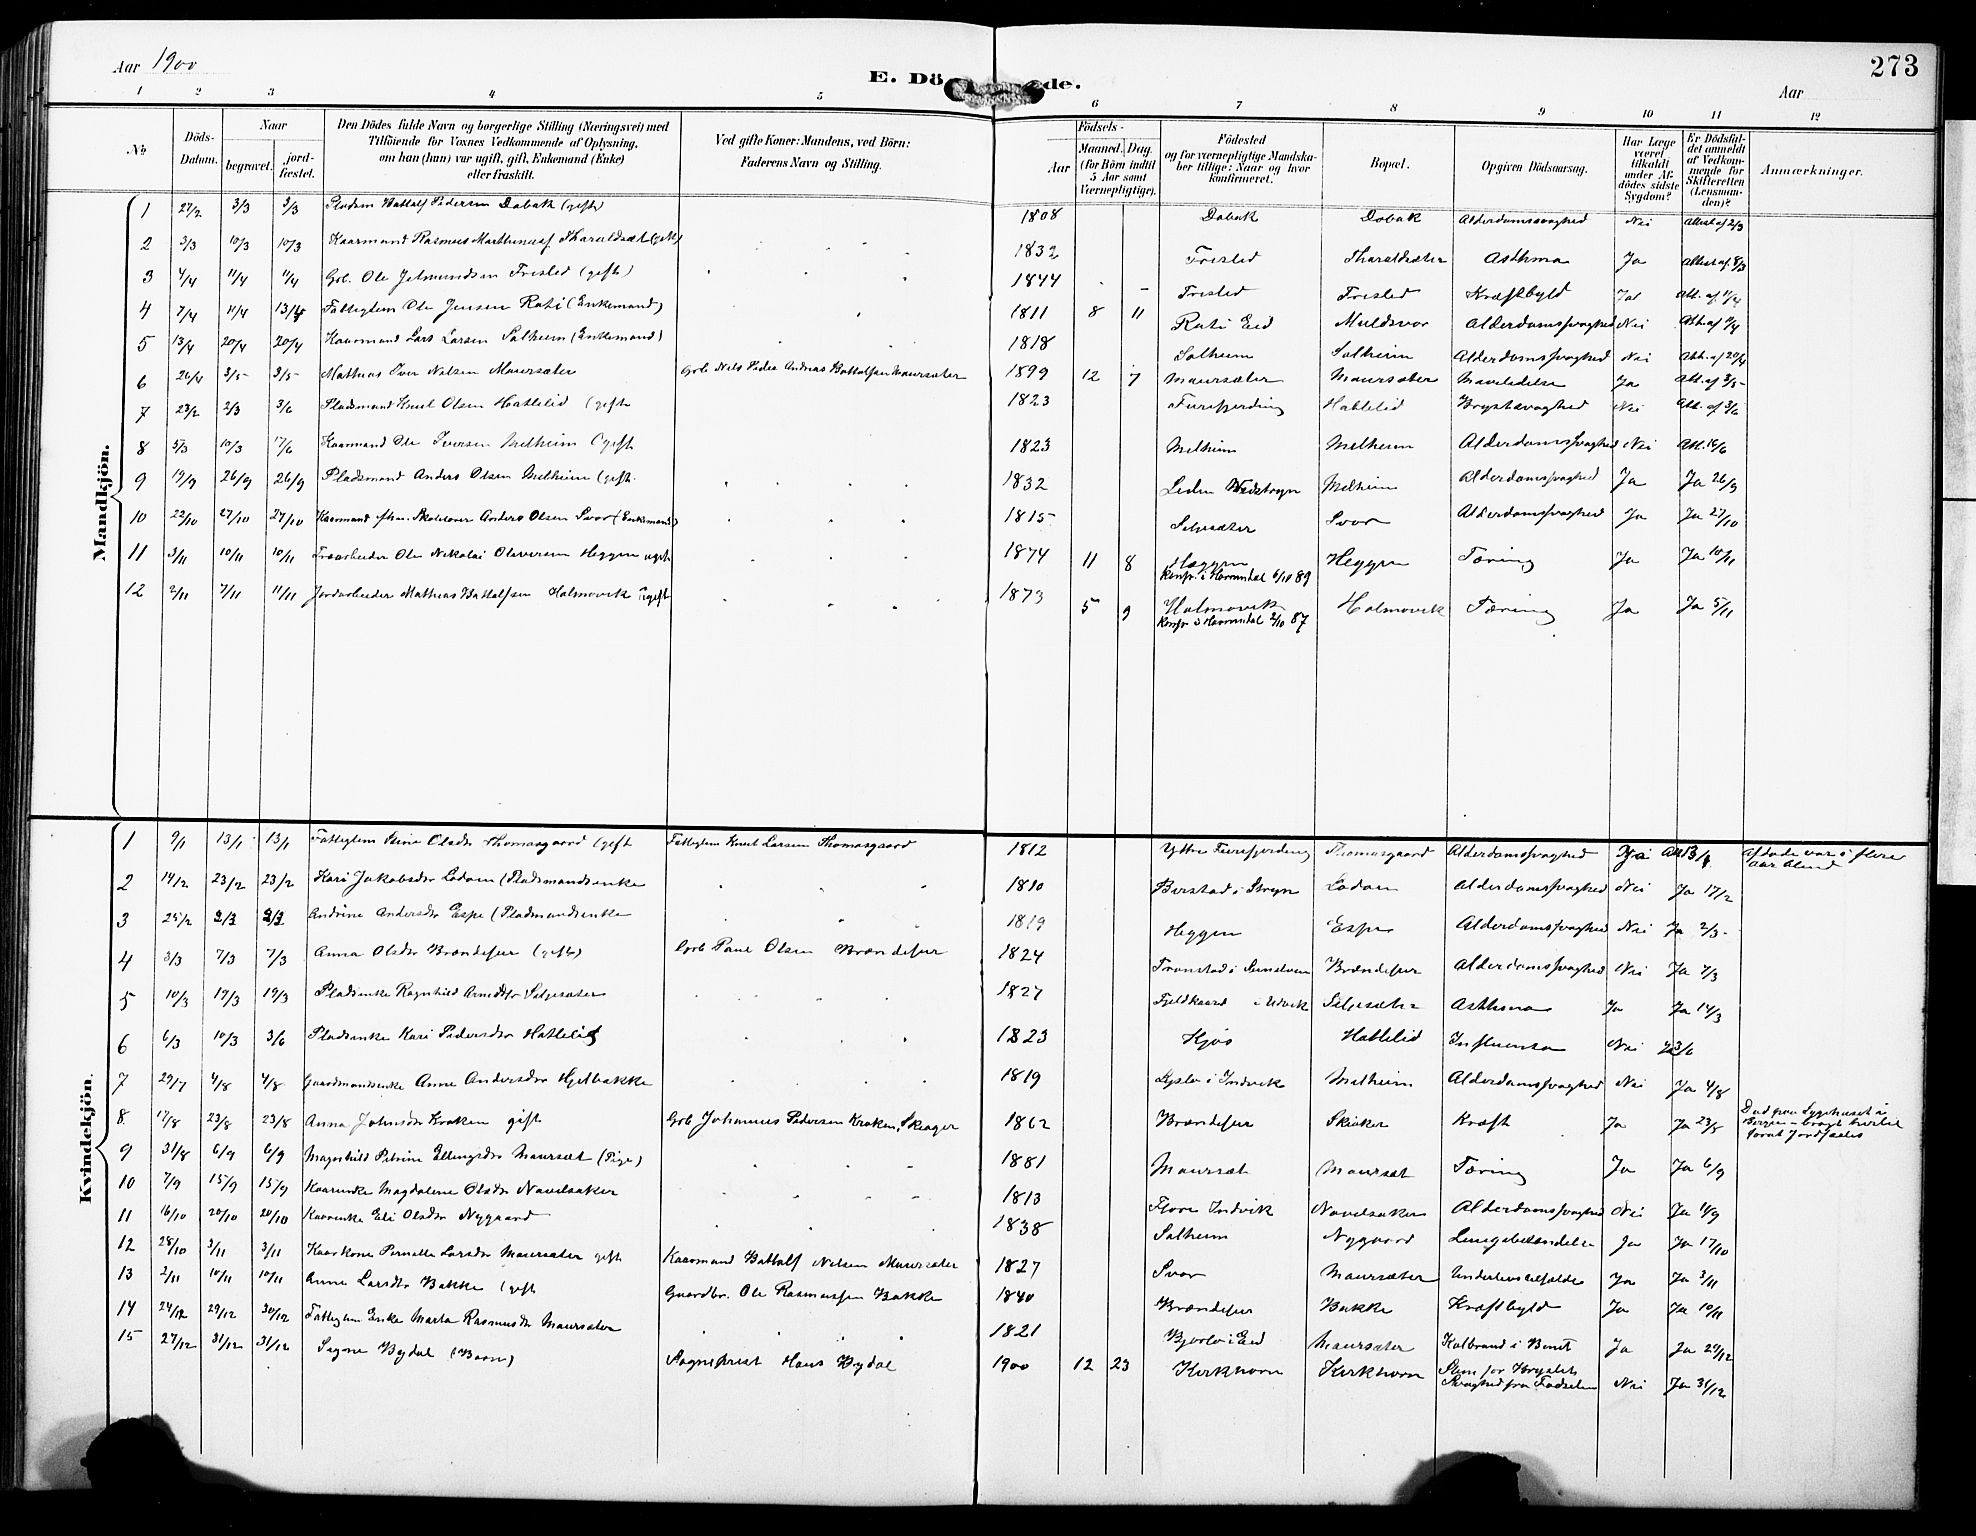 Aar 1900
E. Dö de.
273
Aar
1 2 3 4 5 6 7 8 9 10 11 12
No
Döds-Datum.
Naar
begravet.
jord-fæstet.
Den Dödes fulde Navn og borgerlige Stilling (Næringsvei) med Tilföiende for Voxnes Vedkommende af Oplysning, om han (hun) var ugift, gift, Enkemand (Enke) eller fraskilt.
Ved gifte Koner: Mandens, ved Börn: Faderens Navn og Stilling.
Födsels-
Aar
Maaned. Dag.
(for Börn indtil 5 Aar samt Værnepligtige).
Födested og for værnepligtige Mandska-ber tillige: Naar og hvor konfirmeret.
Bopæl.
Opgiven Dödsaarsag.
Har Læge været tilkaldt under Af-dödes sidste Sygdom?
Er Dödsfal-det anmeldt af Vedkom-mende for Skifteretten (Lensman-den)?
Anmærkninger.
Mandkjön.
1 27/2 3/3 3/3 Pladsm Battolf Pedersen Dobak (gift) 1808 Dobak Dobak Alderdomssvaghed Nei Attest af 2/3
2 3/3 10/3 10/3 Kaarmand Rasmus Marthinus Tharaldsæt (gift) 1832 Frislid Tharaldsæter Asthma Ja Attest af 8/3
3 4/4 11/4 11/4 Grb. Ole Jetmundsen Frislid (gift) 1844 Frislid Frislid Kræftbyld Ja Att. af 11/4
4 7/4 11/4 13/4 Fattiglem Ole Jensen Rati (Enkemand) 1811 8 11 Rati Eid Muldsvor Alderdomssvaghed Nei Att. af 11/4
5 13/4 20/4 20/4 Kaarmand Lars Larsen Solheim (Enkemand) 1818 Solheim Solheim Alderdomssvaghed Nei Att. af 20/4
6 26/4 3/5 3/5 Mathias Iver Nelsen Maursæter Grb. Nels Peder Andreas Battolfsen Maursæter 1899 12 7 Maursæter Maursæter Mavelidelse Ja Att. af 3/5
7 23/2 2/3 3/6 Pladsmand Knut Olsen Hatlelid (gift 1823 Furefjerding Hatlelid Brystsvaghed Nei Att. af 3/6
8 5/3 10/3 17/6 Kaarmand Ole Iversen Melheim (gift 1823 Melheim Melheim Alderdomssvaghed Nei Att. 16/6
9 19/9 26/9 26/9 Pladsmand Anders Olsen Melheim (gift. 1832 Leden Melheim Alderdomssvaghed Ja Ja 26/9
10 22/10 27/10 27/10 Kaarmand fhv. Skolelærer Anders Olsen Svor (Enkemand) 1815 Seljesæter Svor Alderdomssvaghed Ja Ja 27/10
11 3/11 10/11 10/11 Træarbeider Ole Nikolai Oliversen Heggen ugift 1874 11 8 Heggen Heggen Tæring Ja Ja 10/11
Konfr. i Hornindal 6/10 89
12 2/11 7/11 11/11 Jordarbeider Mathias Battolfsen Holmøvik ugift 1873 5 9 Holmøvik Holmøvik Tæring Ja Ja 5/11
Konfr. i Hornindal 2/10 87
Kvindekjön.
1 9/1 13/1 13/1 Fattiglem Stine Olsdr Thomasgaard (gift Fattiglem Knut Larsen Thomasgaard 1812 Ytre Furefjerding Thomasgaard Alderdomssvaghed Afdøde var i flere
Aar blind
2 14/2 23/2 23/2 Kari Jakobsdr Lødøen (Pladsmandsenke 1810 Berstad i Stryn Lødøen Alderdomssvaghed Nei Ja 17/2
3 25/2 2/3 2/3 Andrine Andersdr Espe (Pladsmandsenke 1819 Heggen Espe Alderdomssvaghed Nei Ja 2/3
4 3/3 7/3 7/3 Anna Olsdr Brændefur (gift) Grb Paul Olsen Brændefur 1824 Tronstad i Brændefur Alderdomssvaghed Nei Ja 7/3
5 10/3 19/3 19/3 Pladsenke Ragnhild Arnedtr Seljesæter 1827 i Indvik Seljesæter Asthma Ja Ja 14/3
6 6/3 10/3 3/6 Pladsenke Kari Pedersdr Hatlelid 1823 Kjøs Hatlelid Influensa Nei Ja 3/6
7 29/7 4/8 4/8 Gaardmandsenke Anne Andersdr Hjelbakke 1819 i Indvik Melheim Alderdomssvaghed Nei Ja 4/8
8 17/8 23/8 23/8 Anna Johnsdr Kroken gift Grb Johannes Pedersen Kroken, 1862 Brændefur Kræft Ja Ja 23/8 Død paa Sygehuset i
Bergen – bragt
forat Jordfæstes
9 31/8 6/9 6/9 Magnhild Petrine Ellingsdr Maursæt (Pige) 1881 Maursæt Maursæt Tæring Ja Ja 6/9
10 7/9 15/9 15/9 Kaarenke Magdalene Olsdr Navelsaker 1813 Indvik Navelsaker Alderdomssvaghed Nei Ja 11/9
11 16/10 20/10 20/10 Kaarenke Eli Olsdr Nygaard 1838 Solheim Nygaard Lungebetændelse Ja Ja 17/10
12 28/10 3/11 3/11 Kaarkone Pernille Larsdr Maursæter gift Kaarmand Battolf Nelsen Maursæter 1827 Svor Maursæter Ja Ja 3/11
13 2/11 10/11 10/11 Anne Larsdtr Bakke (gift Gaardbr. Ole Rasmussen Bakke 1840 Brændefur Bakke Kræftbyld Ja Ja 10/11
14 24/12 29/12 30/12 Fattiglem Enke Marta Rasmusdr Maursæter 1821 i Eid Maursæter Kolbrand i Benet Ja Ja 29/12
15 27/12 31/12 31/12 Signe Bydal (Barn) Sognepræst Hans Bydal 1900 12 23 Kirkhorn Kirkhorn Slim for Brystet Svaghed fra Fødselen Nei Ja 31/12